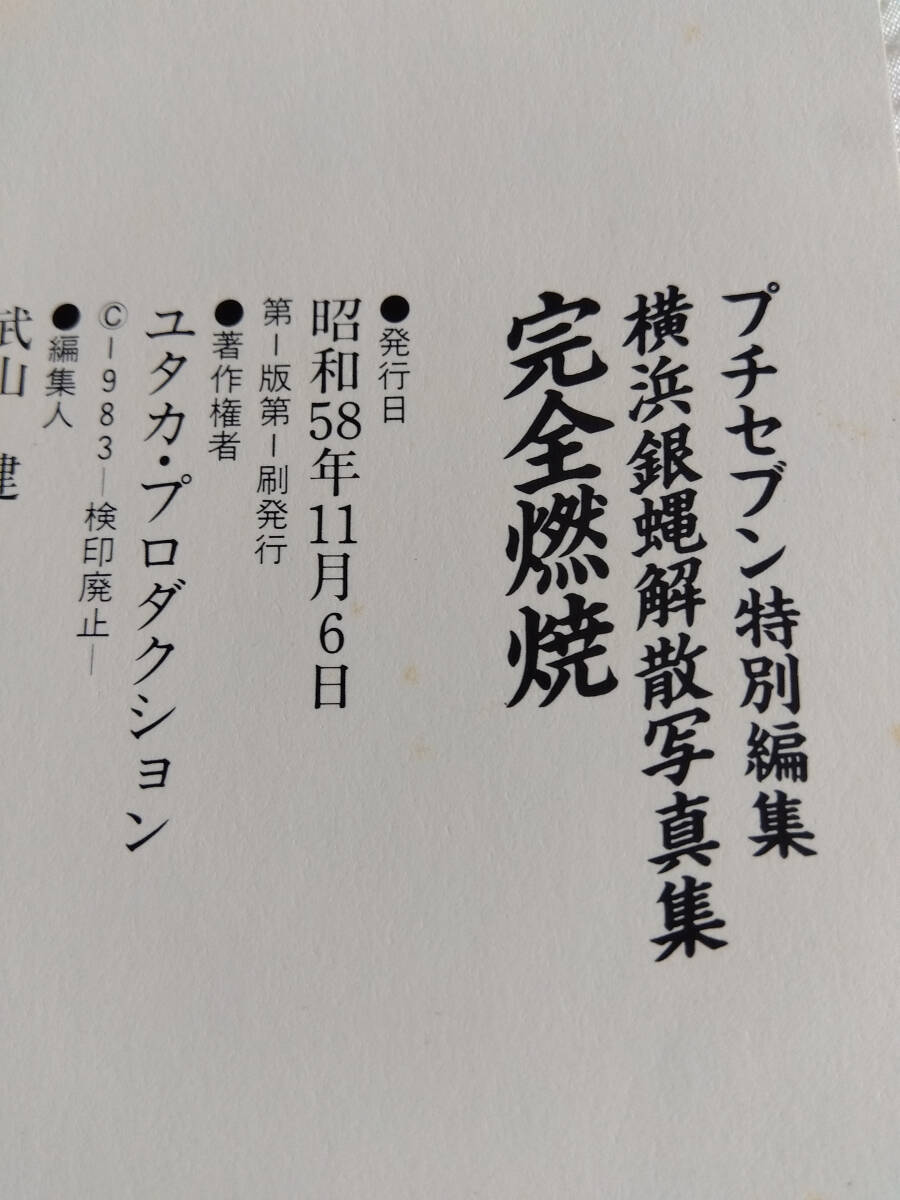 プチセブン特別編集
横浜銀蝿解散写真集
完全燃焼
●発行日
昭和58年11月6日
第1版第1刷発行
●著作権者
ユタカ・プロダクション
©1983—検印廃止—
●編集人
武山 建